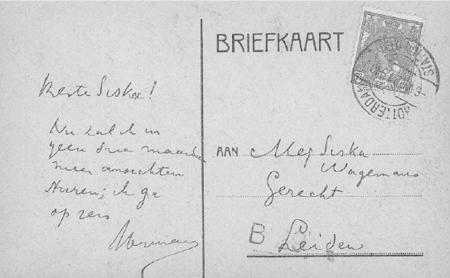 Beste Siska!
Nu zal ik u
geen drie maanden
meer ansichten
sturen; ik ga
op reis
Herman
BRIEFKAART
ROTTERDAM
AAN Mej Siska
Wagemans
Gerecht
B Leiden